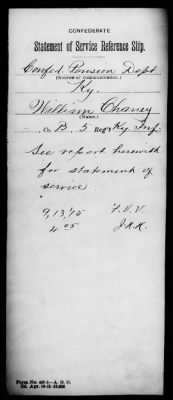 CONFEDERATE
Statement of Service Reference Slip.
Confed. Pension Dept
(Source of communication.)
Ky.
William Chaney
(Name.)
Co. B, 5 Reg't Ky. Inf.
See report herewith
for statement of
service.
9, 13, 15 F.V.V.
4 05 J.R.R.
Form No. 467-1—A. G. O.
Ed. Apr.